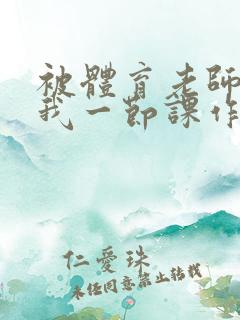 被體育老師
我一節課作
仁愛珠
未任同意禁止转载